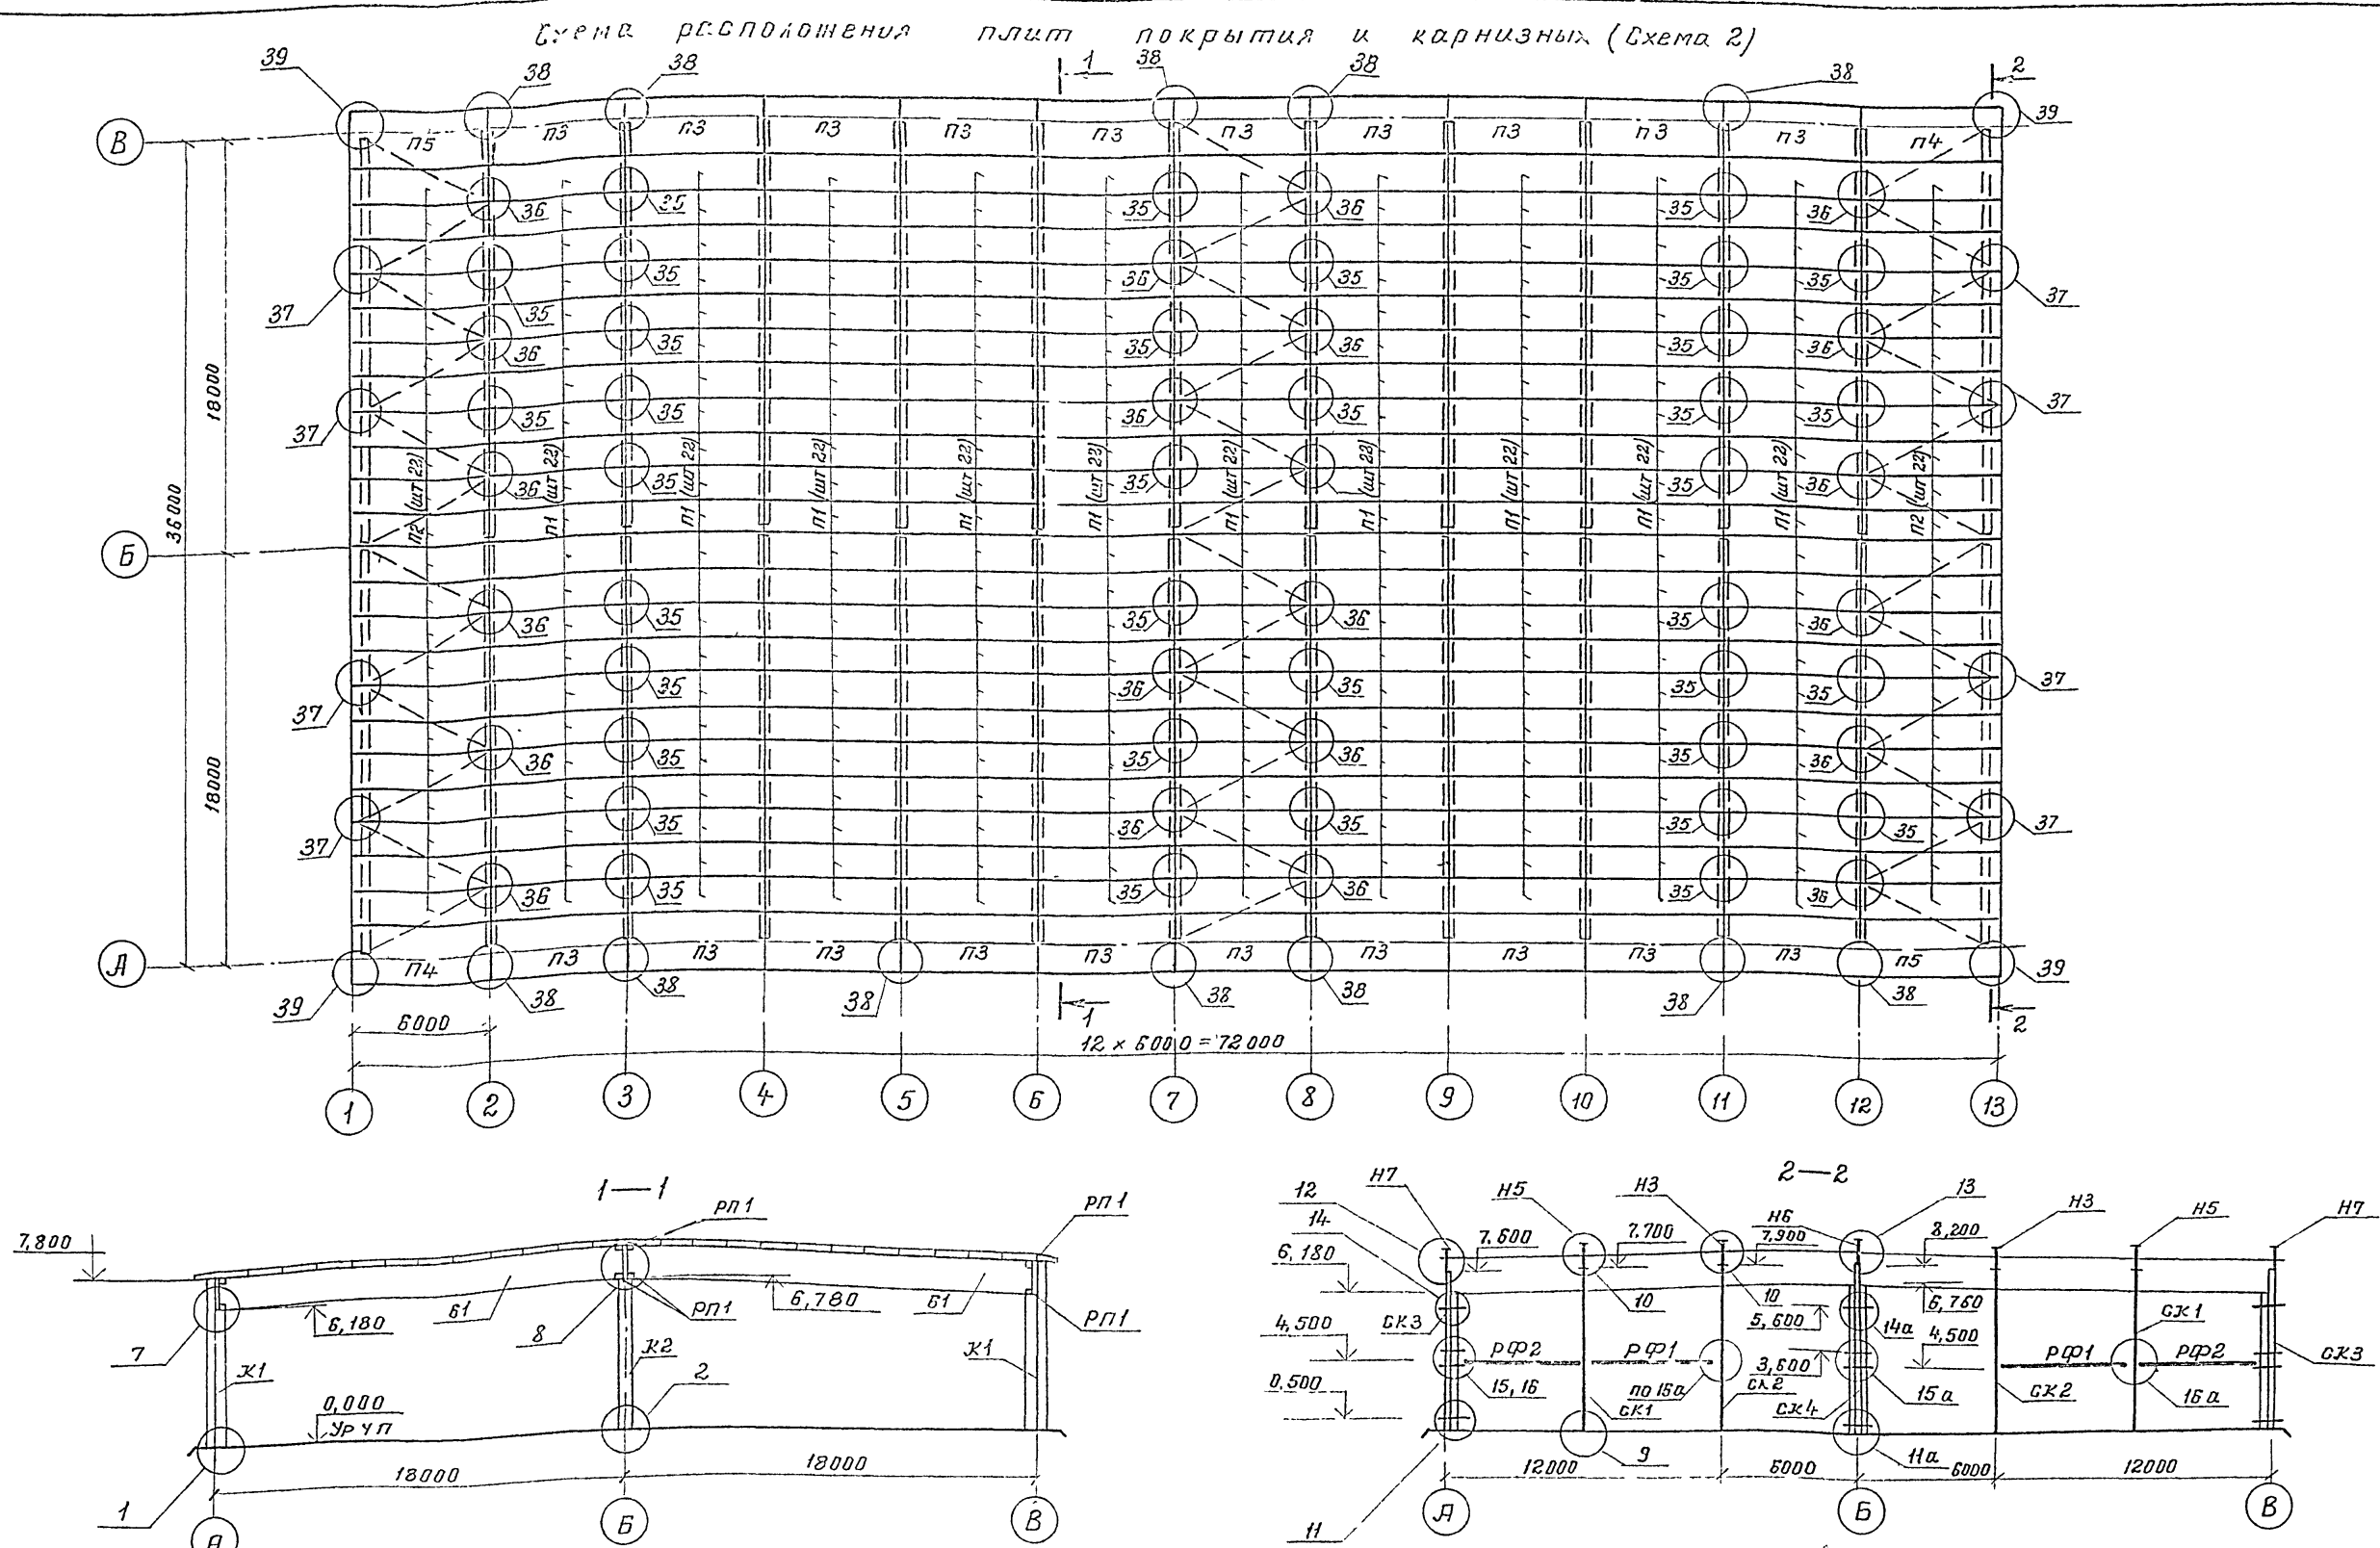 Схема расположения плит покрытия и карнизных (Схема 2)
39 38 38 1 38 38 38 2
39
В П5 П3 П3 П3 П3 П3 П3 П3 П3 П3 П3 П4
36 35 35 36 35 36
37 35 35 36 35 35 35 37
36 35 35 36 35 36
37 35 35 36 35 35 35 37
36 35 35 35 36
18000
36000
18000
П2 (шт 22) П1 (шт 22) П1 (шт 22) П1 (шт 22) П1 (шт 22) П1 (шт 22) П1 (шт 22) П1 (шт 22) П1 (шт 22) П1 (шт 22) П1 (шт 22) П2 (шт 22)
Б
36 35 35 36 35 36
37 35 36 35 35 35 37
36 35 35 36 35 36
37 35 36 35 35 35 37
36 35 35 36 35 36
А П4 П3 П3 П3 П3 П3 П3 П3 П3 П3 П3 П5
39 38 38 38 38 38 38 38 39
1 2
6000
12 x 6000 = 72000
1 2 3 4 5 6 7 8 9 10 11 12 13
1—1
РП1 РП1
7,800
6,180 Б1 РП1 6,780 Б1 РП1
7 8
К1 К2 К1
2
0,000
Ур ч п
18000 18000
1
А Б В
2—2
12 Н7 Н5 Н3 13 Н3 Н5 Н7
14 7.600 7.700 Н6 7,900 8,200
6,180
10 10 6,760
СК3 5,600 14а СК1
4,500 РФ2 РФ1 3,600 4,500 РФ1 РФ2 СК3
0,500 15,16 по 16а СК2 15а СК2 16а
СК1 СК4
9 11а
12000 6000 6000 12000
11
А Б В